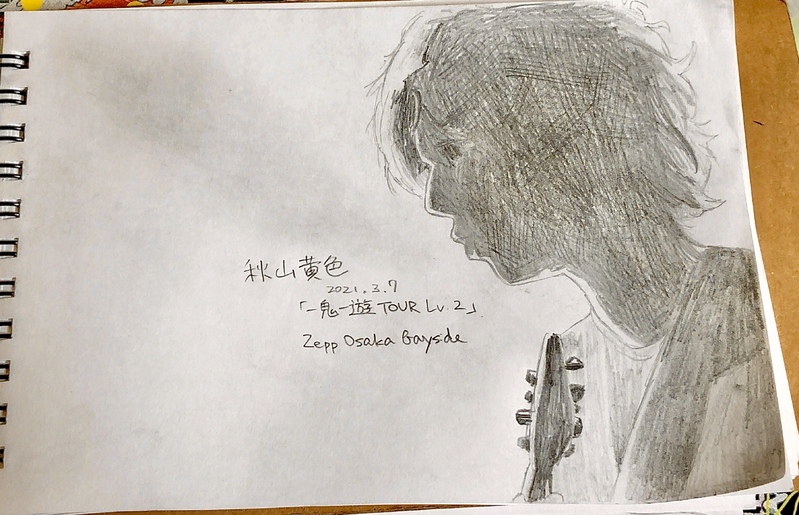 秋山黄色
2021.3.7
「一鬼一遊TOUR Lv.2」
Zepp Osaka Bayside